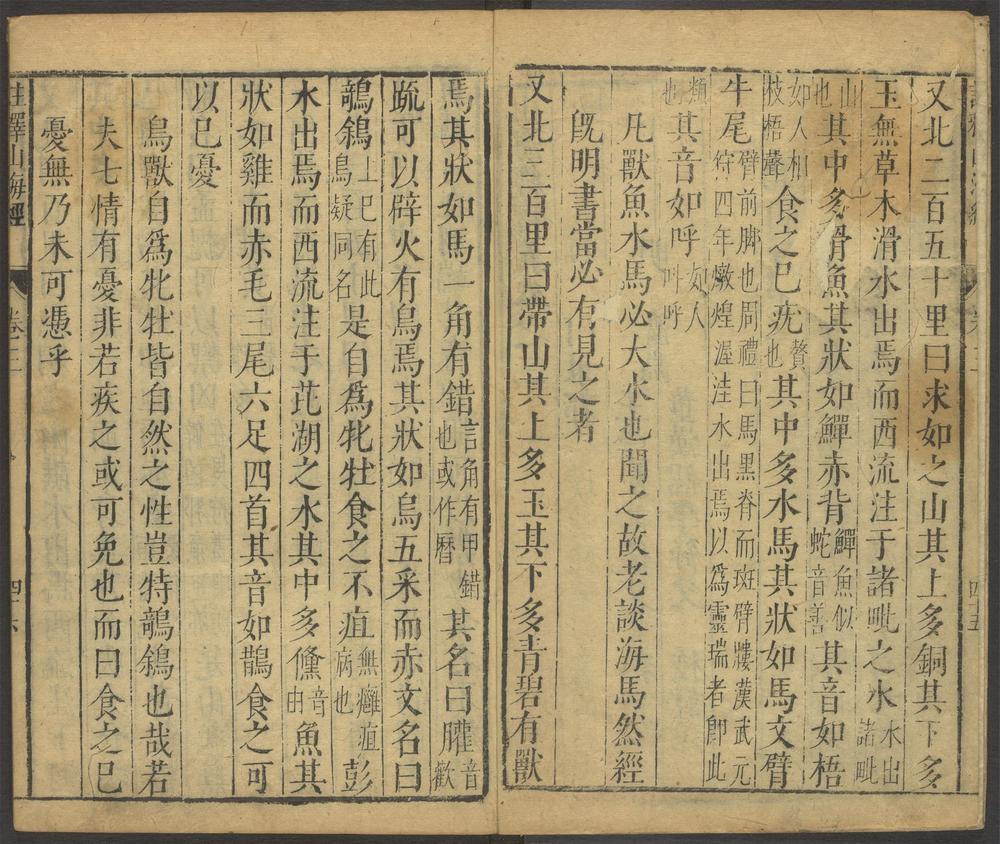 又北二百五十里曰求如之山其上多銅其下多
玉無草木滑水出焉而西流注于諸毗之水水出諸毗
山也其中多滑魚其狀如鱓赤背鱓魚似蛇音善其音如梧
如人相枝梧聲食之已疣贅也其中多水馬其狀如馬文臂
牛尾臂前脚也周禮曰馬黑脊而斑臂膢漢武元狩四年燉煌渥洼水出焉以為靈瑞者卽此
類也其音如呼如人叫呼
凡獸魚水馬必大水也聞之故老談海馬然經
旣明書當必有見之者
又北三百里曰帶山其上多玉其下多青碧有獸
焉其狀如馬一角有錯言角有甲錯也或作厝其名曰䑏音歡
疏可以辟火有鳥焉其狀如烏五采而赤文名曰
鵸鵌上已有此鳥疑同名是自爲牝牡食之不疽無癰疽病也彭
水出焉而西流注于芘湖之水其中多儵音由魚其
狀如雞而赤毛三尾六足四首其音如鵲食之可
以已憂
鳥獸自爲牝牡皆自然之性豈特鵸鵌也哉若
夫七情有憂非若疾之或可免也而曰食之已
憂無乃未可憑乎
註釋山海經
卷三
四十六